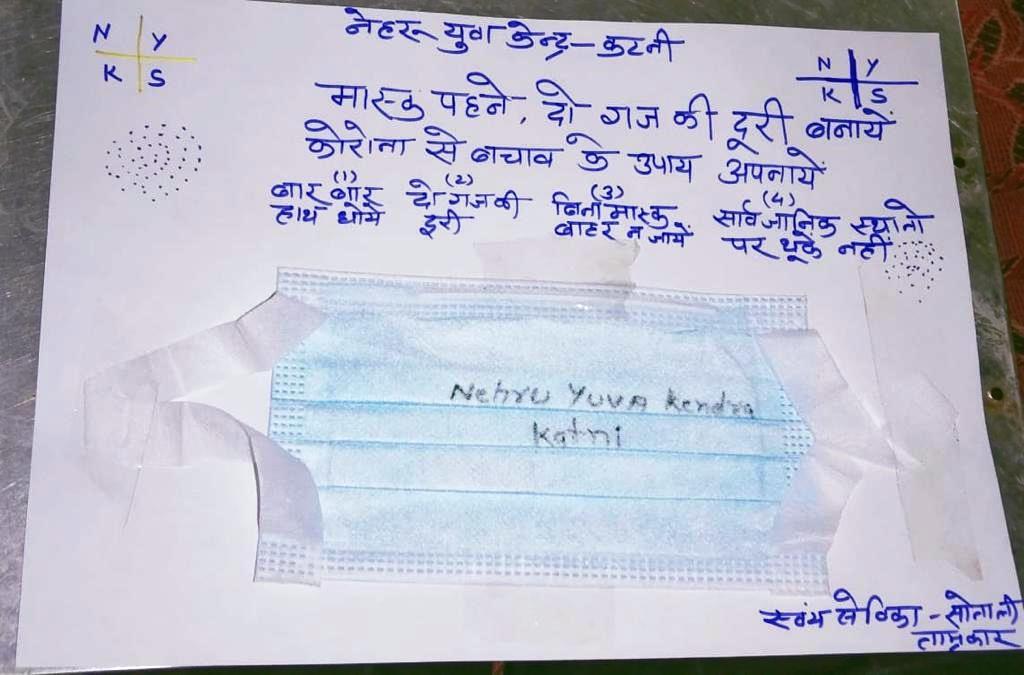 नेहरू युवा केन्द्र - कटनी
N Y
K S
N Y
K S
मास्क पहने, दो गज की दूरी बनायें
कोरोना से बचाव के उपाय अपनायें
(1)
बार बार
हाथ धोये
(2)
दो गज की
दूरी
(3)
बिना मास्क
बाहर न जायें
(4)
सार्वजानिक स्थानो
पर थूके नहीं
Nehru YUVA Kendra
Katni
स्वंय सेविका - सोनाली
ताम्रकार